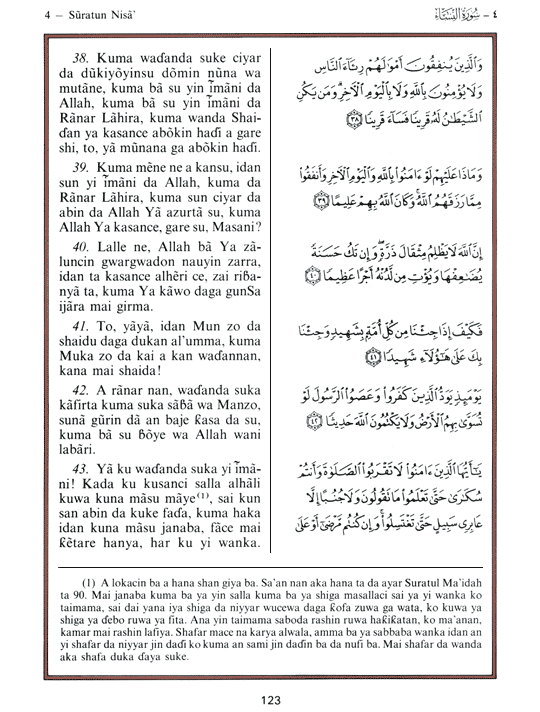 4 — Sūratun Nisā'
٤ - سُورَةُ النِّسَاء
38. Kuma waɗanda suke ciyar
da dũkiyõyinsu dõmin nũna wa
mutãne, kuma bã su yin ĩmãni da
Allah, kuma bã su yin ĩmãni da
Rãnar Lãhira, kuma wanda Shai-
ɗan ya kasance abõkin haɗi a gare
shi, to, yã mũnana ga abõkin haɗi.
39. Kuma mẽne ne a kansu, idan
sun yi ĩmãni da Allah, kuma da
Rãnar Lãhira, kuma sun ciyar da
abin da Allah Yã azurta su, kuma
Allah Ya kasance, gare su, Masani?
40. Lalle ne, Allah bã Ya zã-
luncin gwargwadon nauyin zarra,
idan ta kasance alhẽri ce, zai riɓa-
nyã ta, kuma Ya kãwo daga gunSa
ijãra mai girma.
41. To, yãyã, idan Mun zo da
shaidu daga dukan al'umma, kuma
Muka zo da kai a kan waɗannan,
kana mai shaida!
42. A rãnar nan, waɗanda suka
kãfirta kuma suka sãɓã wa Manzo,
sunã gũrin dã an baje ƙasa da su,
kuma bã su ɓõye wa Allah wani
labãri.
43. Yã ku waɗanda suka yi ĩmã-
ni! Kada ku kusanci salla alhãli
kuwa kuna mãsu mãye(1), sai kun
san abin da kuke faɗa, kuma haka
idan kuna mãsu janaba, fãce mai
ƙẽtare hanya, har ku yi wanka.
وَالَّذِينَ يُنفِقُونَ أَمْوَالَهُمْ رِئَاءَ النَّاسِ
وَلَا يُؤْمِنُونَ بِاللَّهِ وَلَا بِالْيَوْمِ الْآخِرِ وَمَن يَكُنِ
الشَّيْطَانُ لَهُ قَرِينًا فَسَاءَ قَرِينًا ٣٨
وَمَاذَا عَلَيْهِمْ لَوْ ءَامَنُوا بِاللَّهِ وَالْيَوْمِ الْآخِرِ وَأَنفَقُوا
مِمَّا رَزَقَهُمُ اللَّهُ وَكَانَ اللَّهُ بِهِمْ عَلِيمًا ٣٩
إِنَّ اللَّهَ لَا يَظْلِمُ مِثْقَالَ ذَرَّةٍ وَإِن تَكُ حَسَنَةً
يُضَاعِفْهَا وَيُؤْتِ مِن لَّدُنْهُ أَجْرًا عَظِيمًا ٤٠
فَكَيْفَ إِذَا جِئْنَا مِن كُلِّ أُمَّةٍ بِشَهِيدٍ وَجِئْنَا
بِكَ عَلَىٰ هَٰؤُلَاءِ شَهِيدًا ٤١
يَوْمَئِذٍ يَوَدُّ الَّذِينَ كَفَرُوا وَعَصَوُا الرَّسُولَ لَوْ
تُسَوَّىٰ بِهِمُ الْأَرْضُ وَلَا يَكْتُمُونَ اللَّهَ حَدِيثًا ٤٢
يَا أَيُّهَا الَّذِينَ ءَامَنُوا لَا تَقْرَبُوا الصَّلَوٰةَ وَأَنتُمْ
سُكَارَىٰ حَتَّىٰ تَعْلَمُوا مَا تَقُولُونَ وَلَا جُنُبًا إِلَّا
عَابِرِي سَبِيلٍ حَتَّىٰ تَغْتَسِلُوا وَإِن كُنتُم مَّرْضَىٰ أَوْ عَلَىٰ
(1) A lokacin ba a hana shan giya ba. Sa'an nan aka hana ta da ayar Suratul Ma'idah
ta 90. Mai janaba kuma ba ya yin salla kuma ba ya shiga masallaci sai ya yi wanka ko
taimama, sai dai yana iya shiga da niyyar wucewa daga ƙofa zuwa ga wata, ko kuwa ya
shiga ya ɗebo ruwa ya fita. Ana yin taimama saboda rashin ruwa haƙiƙatan, ko ma'anan,
kamar mai rashin lafiya. Shafar mace na karya alwala, amma ba ya sabbaba wanka idan an
yi shafar da niyyar jin daɗi ko kuma an sami jin daɗin ba da nufi ba. Mai shafar da wanda
aka shafa duka ɗaya suke.
123